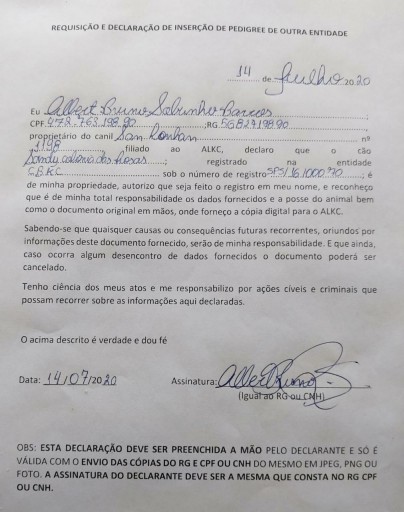 REQUISIÇÃO E DECLARAÇÃO DE INSERÇÃO DE PEDIGREE DE OUTRA ENTIDADE
14 de Julho 2020
Eu Albert Bruno Sobrinho Barcos
CPF 472.763.198.90 ;RG 56827198.90
proprietário do canil San Ronhan nº
1198 filiado ao ALKC, declaro que o cão
Sandy das Rosas ; registrado na entidade
CBKC sob o número de registro SPS/16/00070 ; é
de minha propriedade, autorizo que seja feito o registro em meu nome, e reconheço
que é de minha total responsabilidade os dados fornecidos e a posse do animal bem
como o documento original em mãos, onde forneço a cópia digital para o ALKC.
Sabendo-se que quaisquer causas ou consequências futuras recorrentes, oriundos por
informações deste documento fornecido, serão de minha responsabilidade. E que ainda,
caso ocorra algum desencontro de dados fornecidos o documento poderá ser
cancelado.
Tenho ciência dos meus atos e me responsabilizo por ações cíveis e criminais que
possam recorrer sobre as informações aqui declaradas.
O acima descrito é verdade e dou fé
Data: 14/07/2020 Assinatura: Albert Bruno
(Igual ao RG ou CNH)
OBS: ESTA DECLARAÇÃO DEVE SER PREENCHIDA A MÃO PELO DECLARANTE E SÓ É
VÁLIDA COM O ENVIO DAS CÓPIAS DO RG E CPF OU CNH DO MESMO EM JPEG, PNG OU
FOTO. A ASSINATURA DO DECLARANTE DEVE SER A MESMA QUE CONSTA NO RG CPF
OU CNH.